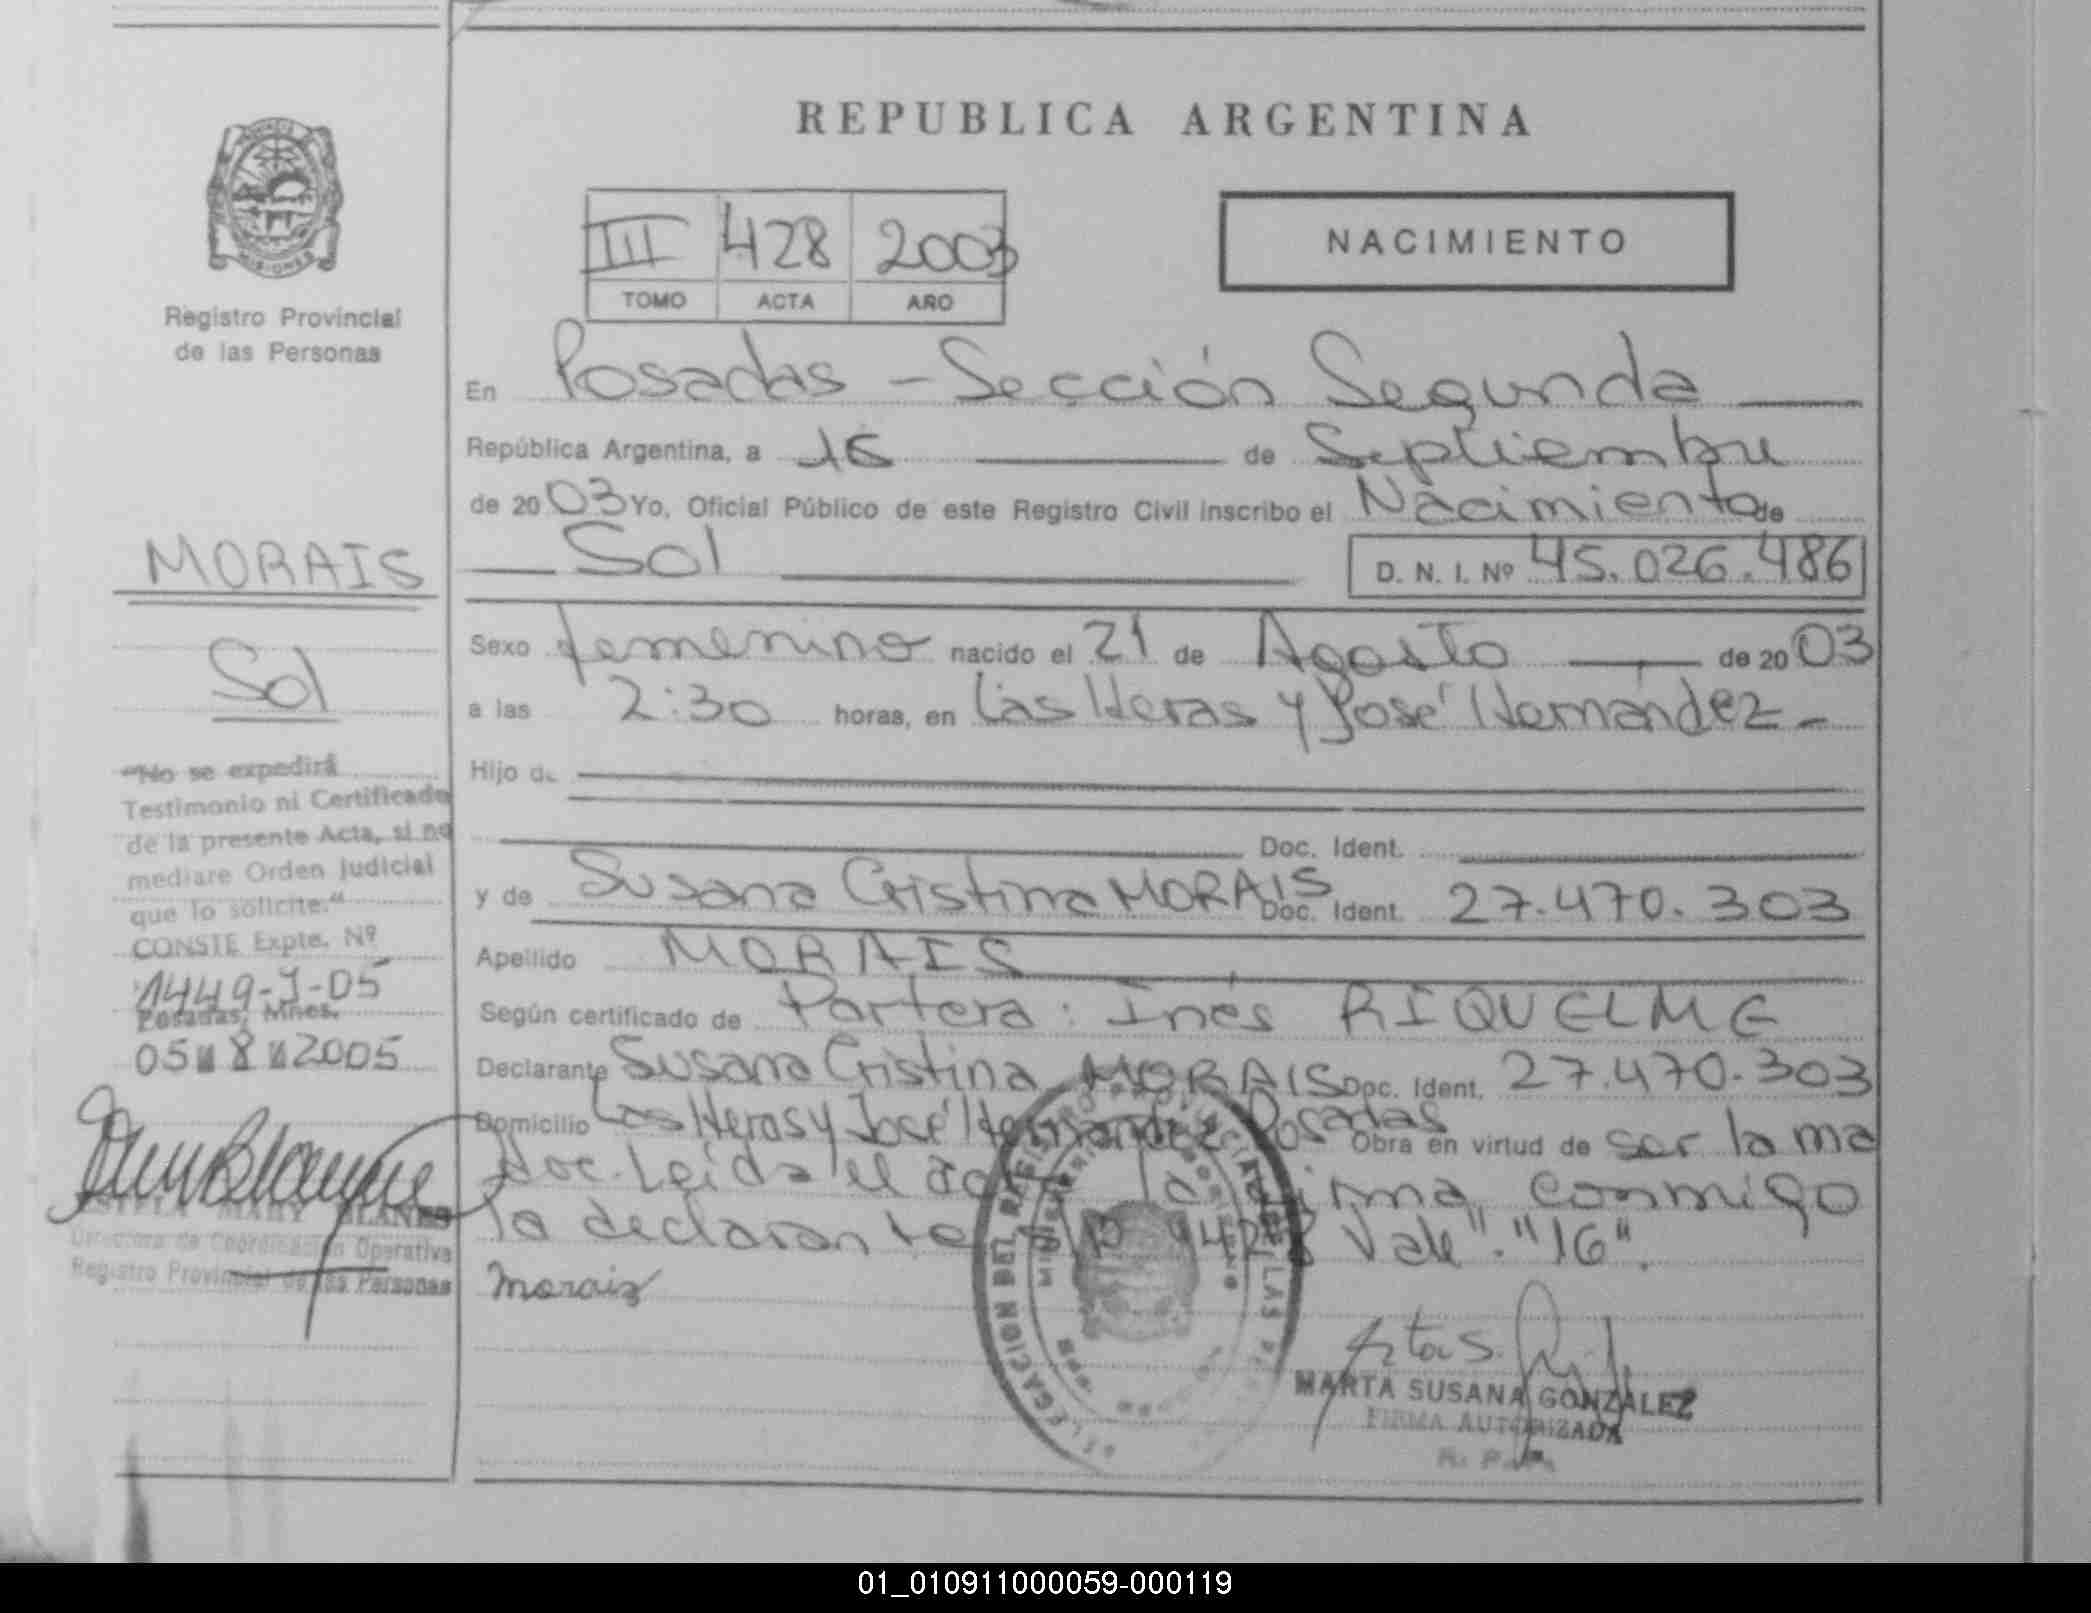 REPUBLICA ARGENTINA
MISIONES
Registro Provincial
de las Personas
III 428 2003
TOMO ACTA AÑO
NACIMIENTO
En Posadas - Sección Segunda
República Argentina, a 16 de Septiembre
de 2003 Yo, Oficial Público de este Registro Civil inscribo el Nacimiento de
Sol D. N. I. Nº 45.026.486
MORAIS
Sol
Sexo femenino nacido el 21 de Agosto de 2003
a las 2:30 horas, en Las Heras y José Hernández -
Hijo de
Doc. Ident.
y de Susana Cristina MORAIS Doc. Ident. 27.470.303
Apellido MORAIS
Según certificado de Partera: Inés RIQUELME
Declarante Susana Cristina MORAIS Doc. Ident. 27.470.303
Domicilio Las Heras y José Hernández Posadas Obra en virtud de ser la ma
Leída el la firma conmigo
la declarante Vale". "16".
Morais
"No se expedirá
Testimonio ni Certificado
de la presente Acta, si no
mediare Orden Judicial
que lo solicite."
CONSTE Expte. Nº
1449-J-05
Posadas, Mnes.
05 8 2005
ESTELA MARY BLANES
Directora de Coordinación Operativa
Registro Provincial de las Personas
DELEGACION DEL REGISTRO PROVINCIAL DE LAS
MARTA SUSANA GONZALEZ
FIRMA AUTORIZADA
01_010911000059-000119